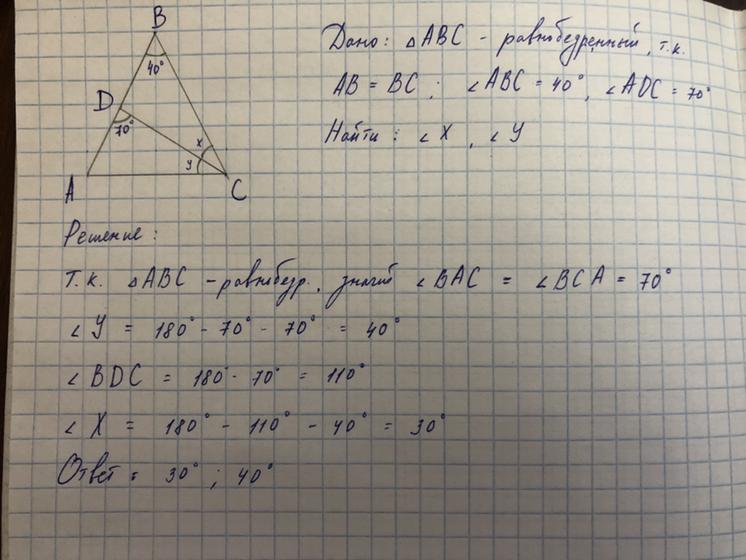 B
Дано: △ABC - равнобедренный, т.к.
40°
AB = BC; ∠ABC = 40°, ∠ADC = 70°
D
70°
Найти: ∠X, ∠Y
x
y
A
C
Решение:
Т.к. △ABC - равнобедр., значит ∠BAC = ∠BCA = 70°
∠Y = 180° - 70° - 70° = 40°
∠BDC = 180° - 70° = 110°
∠X = 180° - 110° - 40° = 30°
Ответ: 30°; 40°